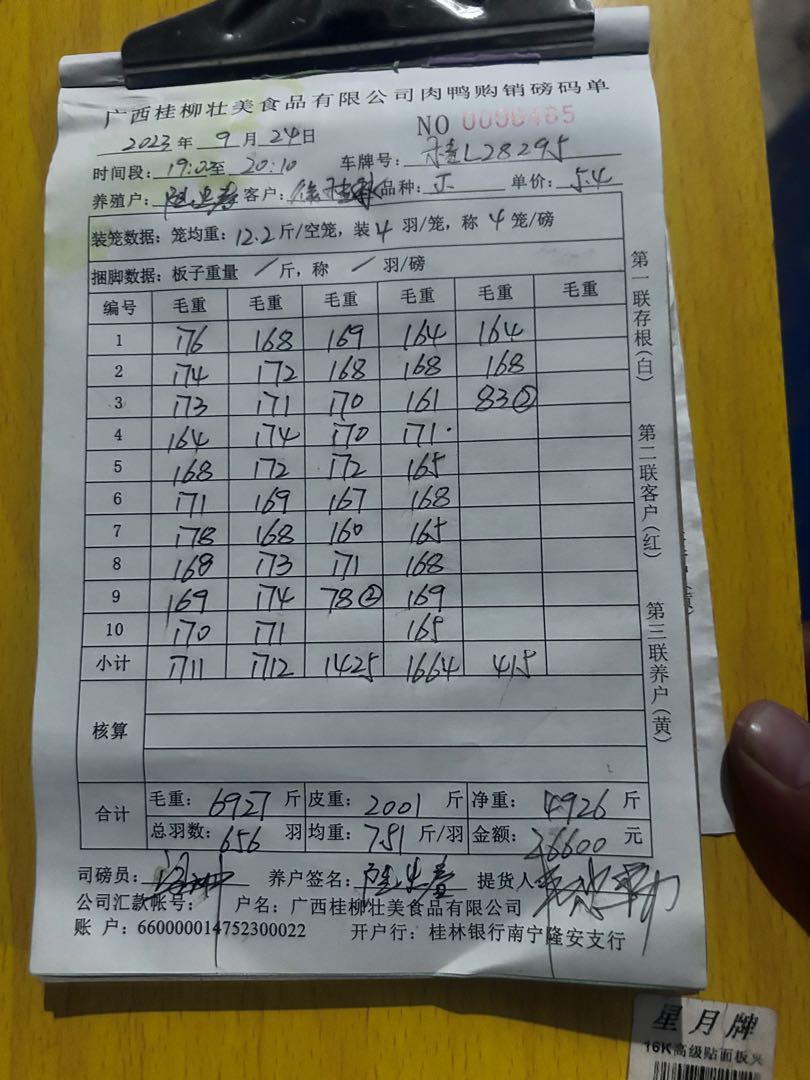 广西桂柳壮美食品有限公司肉鸭购销磅码单
2023年 9月 24日 NO 0000485
时间段: 19:02至 20:10 车牌号: L28295
养殖户: 客户: 品种: 单价: 5.4
装笼数据: 笼均重: 12.2 斤/空笼, 装 4 羽/笼, 称 4 笼/磅
捆脚数据: 板子重量 / 斤, 称 / 羽/磅
编号 毛重 毛重 毛重 毛重 毛重 毛重
1 176 168 169 164 164
2 174 172 168 168 168
3 173 171 170 161 83②
4 164 174 170 171.
5 168 172 172 165
6 171 169 167 168
7 178 168 160 165
8 168 173 171 168
9 169 174 78② 169
10 170 171 165
小计 1711 1712 1425 1664 415
核算
合计 毛重: 6927 斤 皮重: 2001 斤 净重: 4926 斤
总羽数: 656 羽 均重: 7.51 斤/羽 金额: 26600 元
司磅员: 养户签名: 提货人
公司汇款帐号: 户名: 广西桂柳壮美食品有限公司
账 户: 660000014752300022 开户行: 桂林银行南宁隆安支行
第一联存根(白)
第二联客户(红)
第三联养户(黄)
星月牌
16K高级贴面板夹